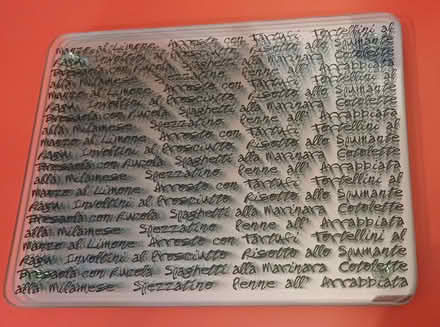 Manzo al Limone Arrosto con Tartufi Tortellini al
Ragu Involtini al Prosciutto Risotto allo Spumante
Bresaola con Rucola Spaghetti alla Marinara Cotolette
alla Milanese Spezzatino Penne all' Arrabbiata
Manzo al Limone Arrosto con Tartufi Tortellini al
Ragu Involtini al Prosciutto Risotto allo Spumante
Bresaola con Rucola Spaghetti alla Marinara Cotolette
alla Milanese Spezzatino Penne all' Arrabbiata
Manzo al Limone Arrosto con Tartufi Tortellini al
Ragu Involtini al Prosciutto Risotto allo Spumante
Bresaola con Rucola Spaghetti alla Marinara Cotolette
alla Milanese Spezzatino Penne all' Arrabbiata
Manzo al Limone Arrosto con Tartufi Tortellini al
Ragu Involtini al Prosciutto Risotto allo Spumante
Bresaola con Rucola Spaghetti alla Marinara Cotolette
alla Milanese Spezzatino Penne all' Arrabbiata
Manzo al Limone Arrosto con Tartufi Tortellini al
Ragu Involtini al Prosciutto Risotto allo Spumante
Bresaola con Rucola Spaghetti alla Marinara Cotolette
alla Milanese Spezzatino Penne all' Arrabbiata